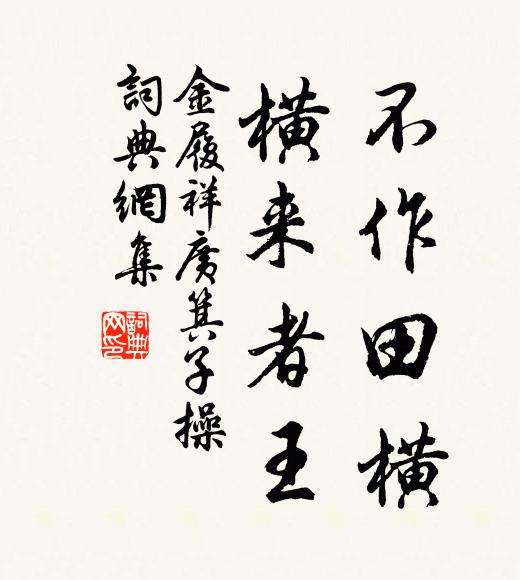 不作田横
横来者王
金履祥廣箕子操
詞典網集
詞典網印